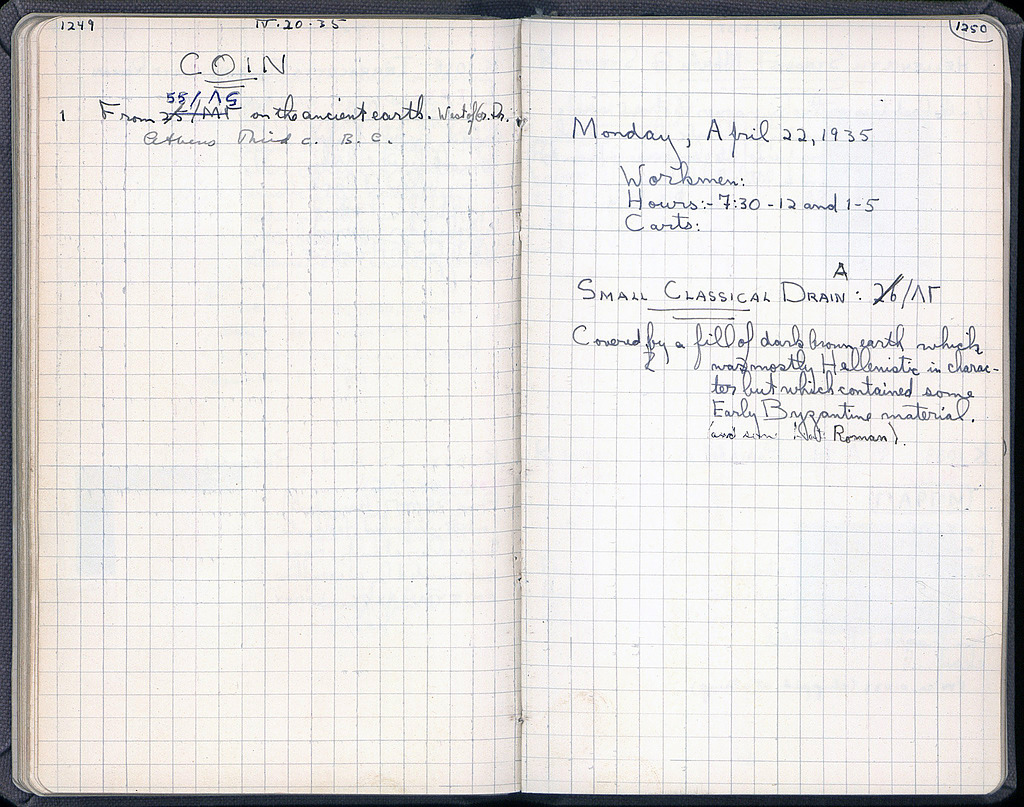 1249
IV.20.35
COIN
55/ΛΣ
1 From on the ancient earth. West of Gr. Dr.
Athens Third c. B. C.
1250
Monday, April 22, 1935
Workmen:
Hours:- 7:30 - 12 and 1-5
Carts:
A
SMALL CLASSICAL DRAIN: 26/ΛΓ
Covered by a fill of dark brown earth which
was mostly Hellenistic in charac-
ter but which contained some
Early Byzantine material.
(and Roman).